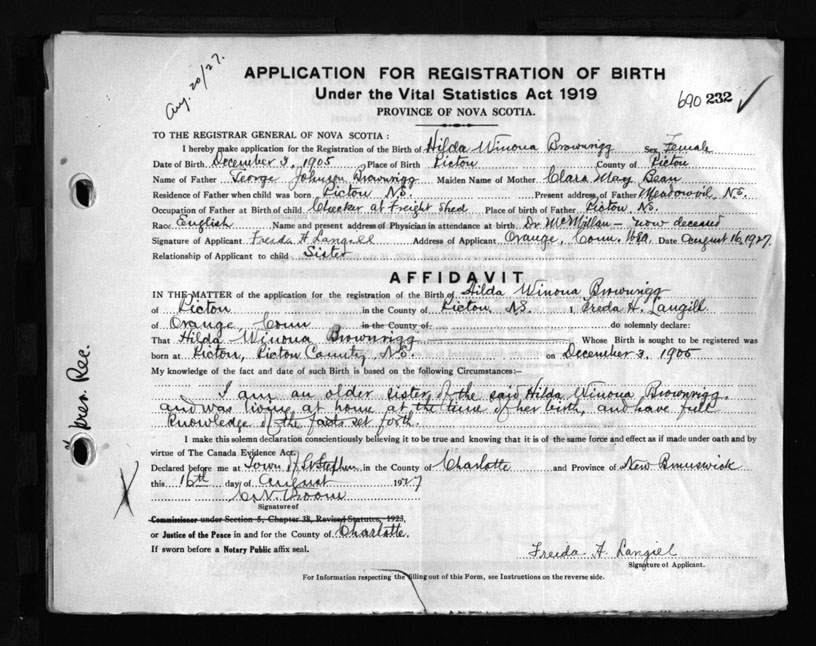 Aug. 20/27.
APPLICATION FOR REGISTRATION OF BIRTH
Under the Vital Statistics Act 1919
PROVINCE OF NOVA SCOTIA.
690 232
TO THE REGISTRAR GENERAL OF NOVA SCOTIA :
I hereby make application for the Registration of the Birth of Hilda Winona Brownrigg Sex Female
Date of Birth December 3, 1905 Place of Birth Pictou County of Pictou
Name of Father George Johnson Brownrigg Maiden Name of Mother Clara May Bean
Residence of Father when child was born Pictou N.S. Present address of Father Meadowvil, N.S.
Occupation of Father at Birth of child Checker at Freight Shed Place of birth of Father Pictou N.S.
Race English Name and present address of Physician in attendance at birth Dr McMillan - now deceased
Signature of Applicant Freida H Langill Address of Applicant Orange, Conn. Date August 16, 1927.
Relationship of Applicant to child Sister
AFFIDAVIT
IN THE MATTER of the application for the registration of the Birth of Hilda Winona Brownrigg
of Pictou in the County of Pictou, N.S. I, Freda H. Langill
of Orange Conn in the County of do solemnly declare:
That Hilda Winona Brownrigg Whose Birth is sought to be registered was
born at Pictou, Pictou County, N.S. on December 3, 1905
My knowledge of the fact and date of such Birth is based on the following Circumstances:—
I am an older sister of the said Hilda Winona Brownrigg
and was living at home at the time of her birth, and have full
knowledge of the facts set forth.
I make this solemn declaration conscientiously believing it to be true and knowing that it is of the same force and effect as if made under oath and by
virtue of The Canada Evidence Act.
Declared before me at Town of St Stephen in the County of Charlotte and Province of New Brunswick
this 16th day of August 1927
Signature of
Commissioner under Section 5, Chapter 38, Revised Statutes, 1923,
or Justice of the Peace in and for the County of Charlotte.
If sworn before a Notary Public affix seal.
Freida H. Langill
Signature of Applicant.
For Information respecting the filling out of this Form, see Instructions on the reverse side.
Rec.